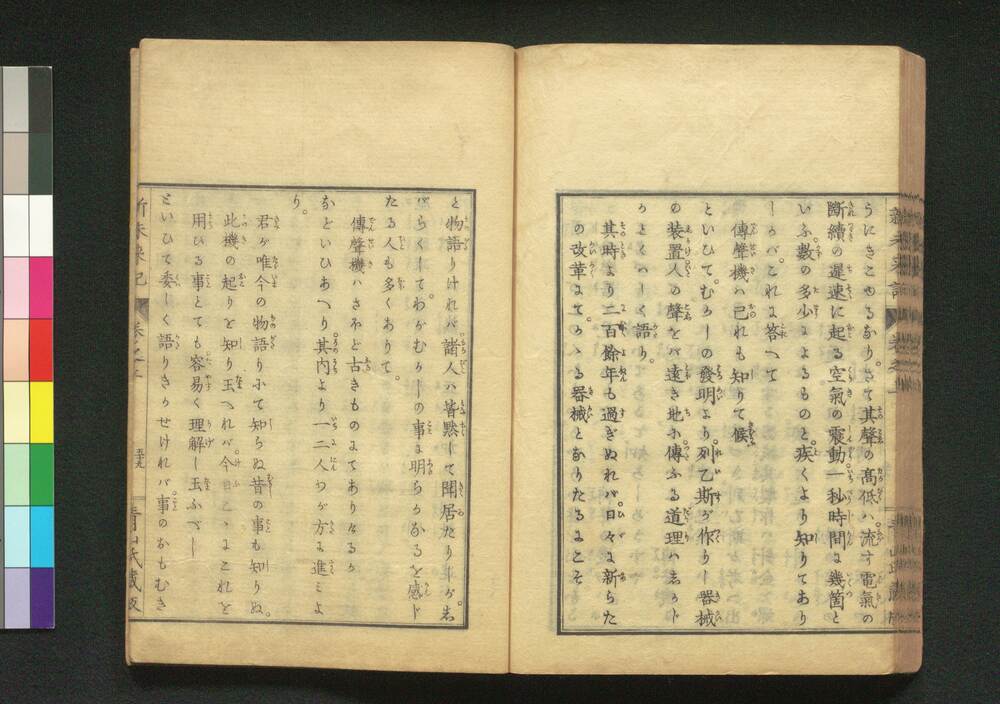 うにきこゆるなり。さて其聲の高低ハ。流す電氣の
斷續の遲速に起る空氣の震動一秒時間に幾箇と
いふ數の多少によるものと。疾くより知りてあり
しかバ。これに答へて
傳聲機ハ己れも知りて候
といひて。むかしの發明より。列乙斯が作りし器械
の装置人の聲をバ遠き地に傳ふる道理ハしか〳〵
かくとくハしく語り。
其時より二百餘年も過ぎぬれバ。日々に新らた
の改革にてかゝる器械となりたるにこそ
と物語りけれバ。諸人ハ皆默して聞居たりしが。志
バらくしてわがむかしの事に明らかなるを感じ
たる人も多くありて。
傳聲機ハさほど古きものにてありけるか
などいひあへり。其内より一二人わが方に進みよ
り。
君が唯今の物語りにて知らぬ昔の事も知りぬ。
此機の起りを知り玉へれバ。今日こゝにこれを
用ひる事とても容易く理解し玉ふべし
といひて委しく語りきかせけれバ。事のおもむき
新未來記
卷之二
青山氏藏版